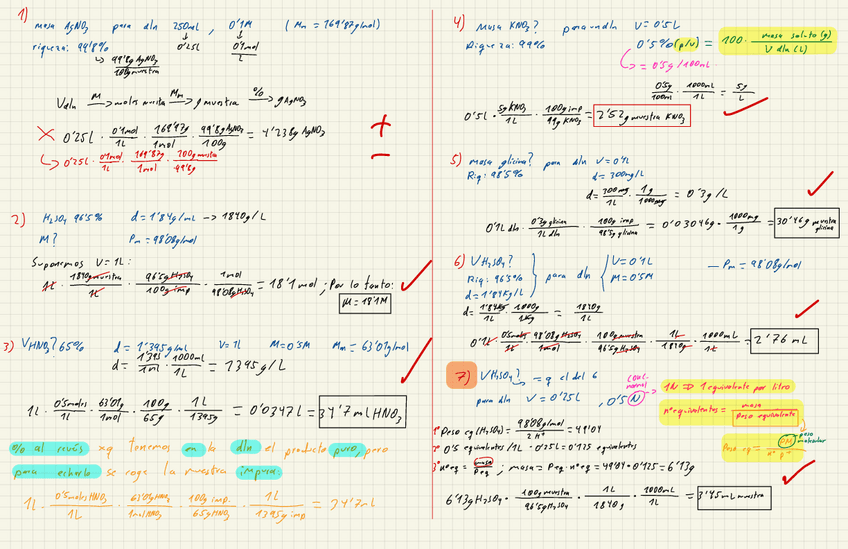 1)
masa AgNO3 para dln 250mL, 0'1M (Mm = 169'87g/mol)
riqueza: 99'8% 0'25L 0'1mol/L
99'8g AgNO3/100g muestra
Vdln M→ moles Mm→ g muestra %→ g AgNO3
X 0'25L · 0'1mol/1L · 169'87g/1mol · 99'8g AgNO3/100g = 4'238g AgNO3 +
0'25L · 0'1mol/1L · 169'87g/1mol · 100g muestra/99'8g −
2)
H2SO4 96'5% d = 1'84g/mL → 1840g/L
M? Pm = 98'08g/mol
Suponemos V = 1L:
1L · 1840g muestra/1L · 96'5g H2SO4/100g imp · 1mol/98'08g H2SO4 = 18'1mol; Por lo tanto:
M = 18'1M
3) VHNO3? 65% d = 1'395g/mL V = 1L M = 0'5M Mm = 63'01g/mol
d = 1'395/1ml · 1000mL/1L = 1395g/L
1L · 0'5moles/1L · 63'01g/1mol · 100g/65g · 1L/1395g = 0'0347L = 34'7mL HNO3
% al revés xq tenemos en la dln el producto puro, pero
para echarlo se coge la muestra impura:
1L · 0'5moles HNO3/1L · 63'01g HNO3/1mol HNO3 · 100g imp./65g HNO3 · 1L/1395g imp = 34'7mL
4) masa KNO3? para una dln V = 0'5L
Riqueza: 99% 0'5% (p/v) = 100 · masa soluto (g)/V dln (L)
= 0'5g/100mL
0'5g/100mL · 1000mL/1L = 5g/L
0'5L · 5g KNO3/1L · 100g imp/99g KNO3 = 2'52g muestra KNO3
5) masa glicina? para dln V = 0'1L
Riq: 98'5% d = 300mg/L
d = 300mg/1L · 1g/1000mg = 0'3g/L
0'1L dln · 0'3g glicina/1L dln · 100g imp/98'5g glicina = 0'03046g · 1000mg/1g = 30'46g muestra glicina
6) VH2SO4? V = 0'1L — Pm = 98'08g/mol
Riq: 96'5% para dln M = 0'5M
d = 1'84Kg/L
d = 1'84Kg/1L · 1000g/1Kg = 1840g/1L
0'1L · 0'5moles/1L · 98'08g H2SO4/1mol · 100g muestra/96'5g H2SO4 · 1L/1840g · 1000mL/1L = 2'76 mL
7) VH2SO4? = q el del 6
para dln V = 0'25L, 0'5N 1N ⇒ 1 equivalente por litro
nºequivalentes = masa/Peso equivalente
1º Peso eq (H2SO4) = 98'08g/mol/2 H+ = 49'04
2º 0'5 equivalentes/1L · 0'25L = 0'125 equivalentes
Peso eq = PM/nº H+ peso molecular
3º neq = masa/Peq; masa = Peq · nºeq = 49'04 · 0'125 = 6'13g
6'13g H2SO4 · 100g muestra/96'5g H2SO4 · 1L/1840g · 1000mL/1L = 3'45mL muestra